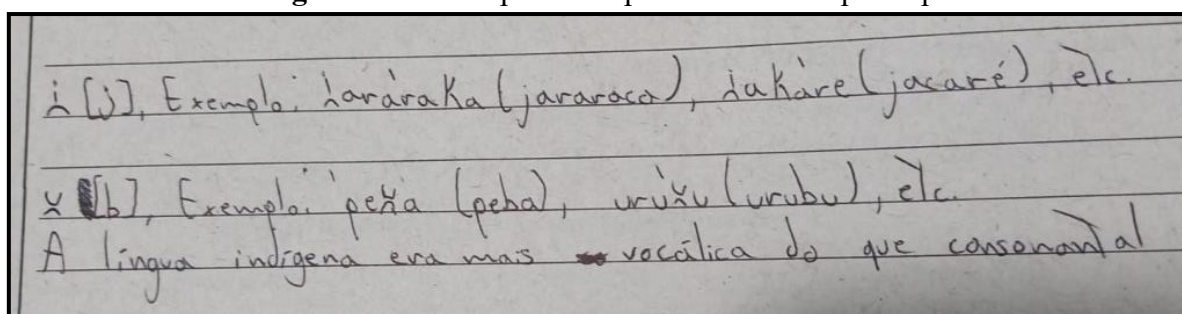 i [j], Exemplo: iaráraka (jararaca), iakáre (jacaré), etc.
[b], Exemplo: (peba), (urubu), etc.
A língua indígena era mais vocálica do que consonantal